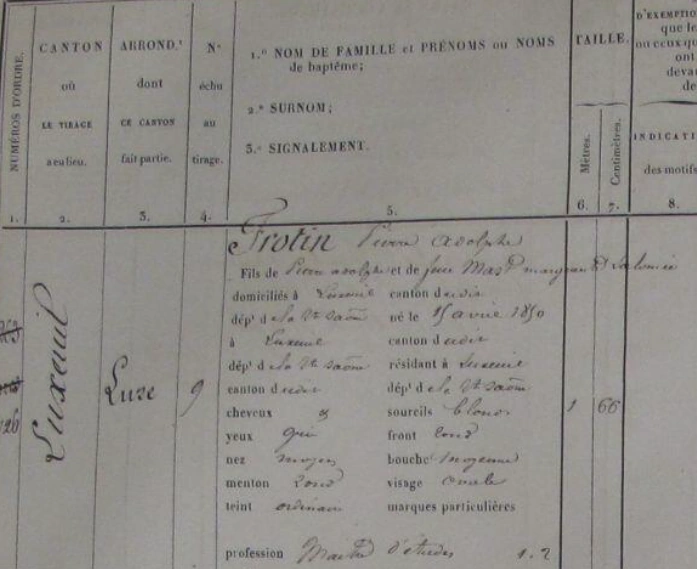 NUMÉROS D'ORDRE.
1.
CANTON
où
LE TIRAGE
a eu lieu.
2.
ARROND.t
dont
CE CANTON
fait partie.
3.
N°
échu
au
tirage.
4.
1.° NOM DE FAMILLE et PRÉNOMS ou NOMS
de baptême;
2.° SURNOM;
3.° SIGNALEMENT.
5.
TAILLE.
Mètres.
6.
Centimètres.
7.
D'EXEMPTIO
que le
ou ceux qu
ont
deva
de
INDICATI
des motifs
8.
126
Luxeuil
Lure
9
Frotin Pierre adolphe
Fils de Pierre adolphe et de
domiciliés à Luxeuil canton dudit
dépt de la Hte Saône né le 15 avril 1850
à Luxeuil canton dudit
dépt de la Hte Saône résidant à Luxeuil
canton dudit dépt de la Hte Saône
cheveux & sourcils blonds
yeux gris front rond
nez moyen bouche moyenne
menton rond visage ovale
teint ordinaire marques particulières
profession Maître d'études 1.2
1 66